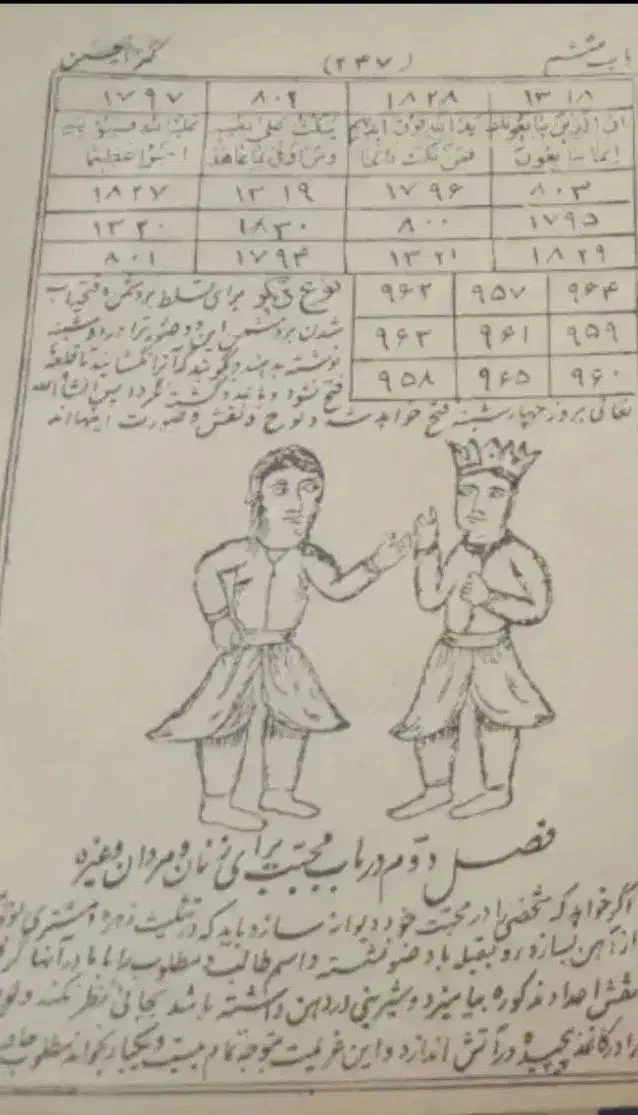 باب هشتم (۲۴۷)
۱۳۱۸ ۱۸۲۸ ۸۰۲ ۱۷۹۷
ان الذین یبایعونک یدالله فوق ایدیهم ینکث علی نفسه علیه الله فسیؤتیه
انما یبایعون فمن نکث فانما ومن اوفی بما عاهد اجرا عظیما
۸۰۳ ۱۷۹۶ ۱۳۱۹ ۱۸۲۷
۱۷۹۵ ۸۰۰ ۱۸۳۰ ۱۳۲۰
۱۸۲۹ ۱۳۲۱ ۱۷۹۴ ۸۰۱
۹۶۴ ۹۵۷ ۹۶۲
۹۵۹ ۹۶۱ ۹۶۳
۹۶۰ ۹۶۵ ۹۵۸
نوع دیگر برای تسلط بر دشمن و فتحیاب
شدن بر دشمن این دو صورت را در دوشنبه
نوشته بدهند و گوید که آنرا بگشایند تا قلعه
فتح نشود و باید برگشته نگردد پس انشاالله
تعالی بروز چهارشنبه فتح خواهد شد و لوح و نقش و صورت اینها اند
فصل دوم در باب محبت برای زنان و مردان و غیره
اگر خواهد که شخصی را در محبت خود دیوانه سازد باید که در تثلیث زهره و مشتری لوحی
از آهن بسازد رو بقبله باوضو نشسته و اسم طالب و مطلوب را با مادر آنها
نقش اعداد مذکوره بیامیزد و شیرینی در دهن داشته باشد بجائی نظر نکند و لوح
را در کاغذ پیچیده در آتش اندازد و این عزیمت متوجه تمام بیست و یکبار بخواند مطلوب